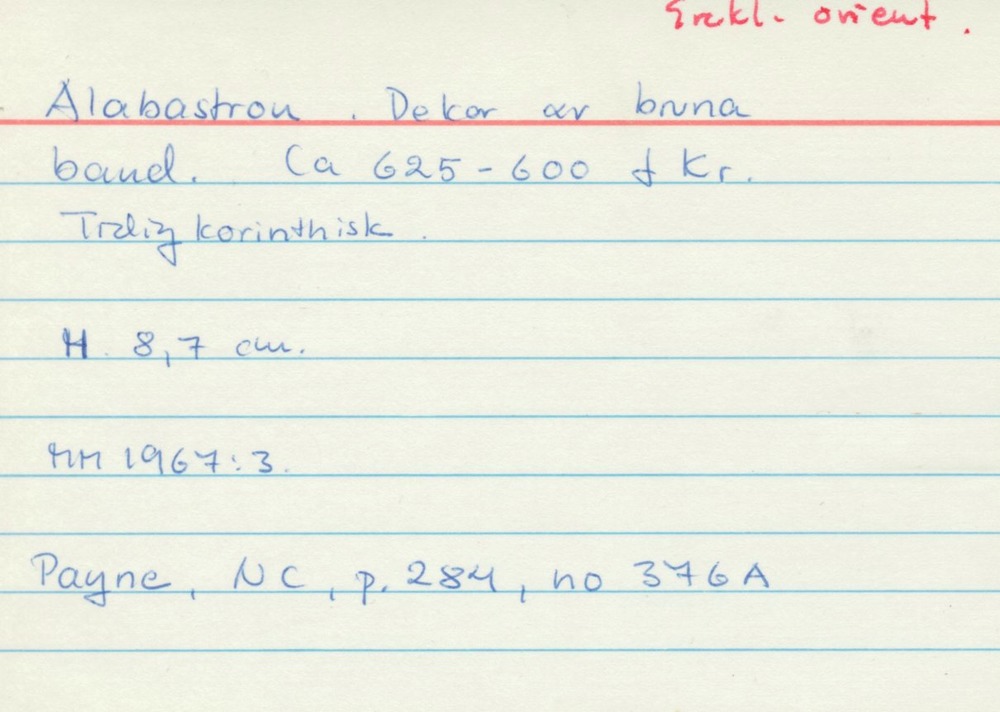 Grekl. orient.
Alabastron. Dekor av bruna
band. Ca 625-600 f Kr.
Tidig korinthisk.
H. 8,7 cm.
MM 1967:3.
Payne, NC, p. 284, no 376A